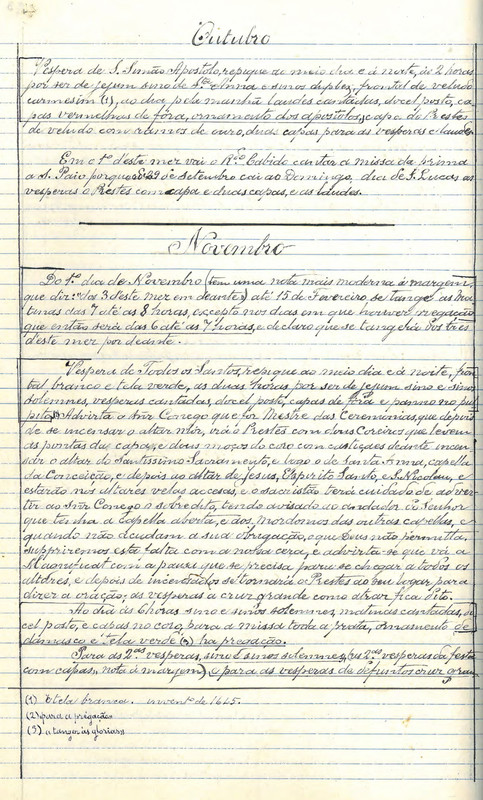 Outubro
Vespera de S. Simão Apostolo, repique ao meio dia e á noite, ás 2 horas
por ser de jejum sino de Stª Anna e sinos duples, frontal de veludo
curmesim (1), ao dia pela manhã laudes cantadas, docel posto, ca-
pas vermelhas de fóra, ornamento dos apostolos, capa do Prestes
de veludo com ramos de ouro, duas capas para as vesperas e laudes.
Em o 1º d'este mez vai o Rdo Cabido cantar a missa da prima
a S. Paio porque a 29 de Setembro cai ao Domingo, dia de S. Lucas as
vesperas o Prestes com capa e duas capas, e as laudes.
Novembro
Do 1º dia de Novembro (tem uma nota mais moderna á margem,
que diz: "dos 3 deste mez em deante") até 15 de Fevereiro, se tange as Ma-
tinas das 7 até as 8 horas, excepto nos dias em que houver pregação
que então será das 6 até as 7 horas, e declaro que se tangerá dos tres
d'este mez por deante.
Vespera de Todos os Santos, repique ao meio dia e á noite, fron-
tal branco e tela verde, as duas horas, por ser de jejum sino e sinos
solemnes, vesperas cantadas, docel posto, capas de fóra e panno no pul-
pito (2) Advirta o Snr Conego que for Mestre das Ceremonias, que depois
de se incensar o altar mór, irá o Prestes com dous Coreiros que levem
as pontas da capa, e dous moços do coro com castiçaes deante incen-
sar o altar do Santissimo Sacramento, e logo o de Santa Anna, capella
da Conceição, e depois ao altar de Jesus, Espirito Santo, e S. Nicolau, e
estarão nos altares velas accesas, e o sacristão terá cuidado de adver-
tir ao Snr Conego o sobredito, tendo avisado ao andador do Senhor
que tenha a Capella aberta, e aos mordomos das outras capellas, e
quando não acudam a sua obrigação, o que Deus não permitta,
suppriremos esta falta com a nossa cera, e advirta se que vá a
Magnificat com a pausa que se precisa para se chegar a todos os
altares, e depois de incensados se tornará o Prestes ao seu logar para
dizer a oração, as vesperas a cruz grande como atraz fica dito.
Ao dia ás 6 horas sino e sinos solemnes, matinas cantadas, do-
cel posto, e capas no coro, para a missa toda a prata, ornamento de
damasco e tela verde (3) ha pregação.
Para as 2as vesperas, sino e sinos solemnes, (as 2as vesperas da festa
com capas, nota á margem) e para as vesperas de defuntos cruz gran-
(1) E tela branca. invento de 1645.
(2) para a pregação
(3) a tanger ás glorias